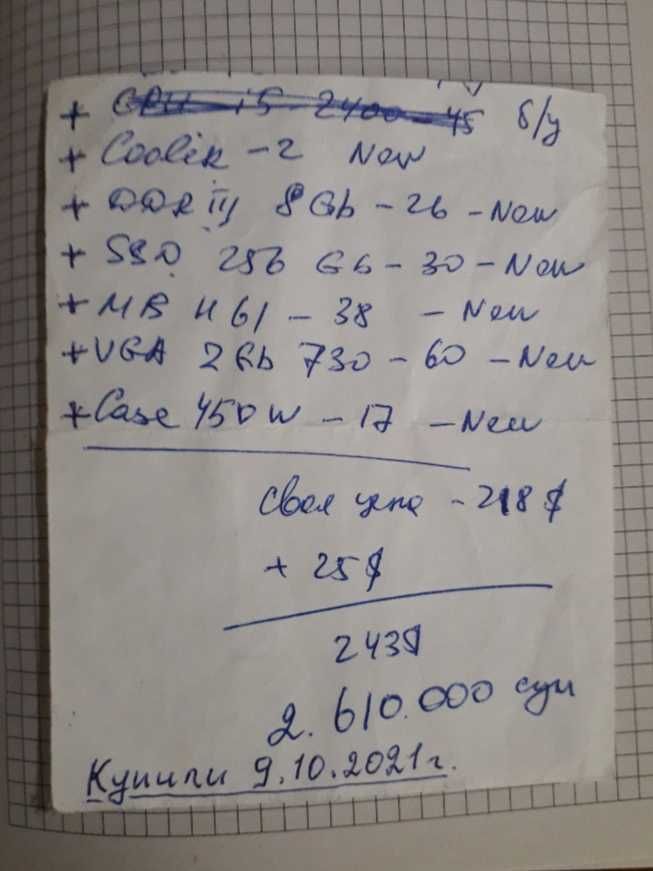 + CPU i5 2400 - 45 б/у
+ Cooler - 2 New
+ DDR III 8Gb - 26 - New
+ SSD 256 Gb - 30 - New
+ MB H61 - 38 - New
+ VGA 2Gb 730 - 60 - New
+ Case 450W - 17 - New
Своя цена - 218 $
+ 25$
243$
2.610.000 сум
Купили 9.10.2021г.